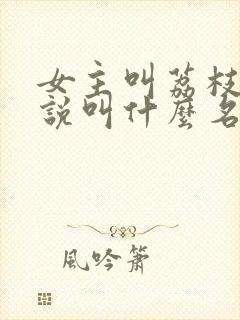 女主叫荔枝
說叫什麼名
風吟簫